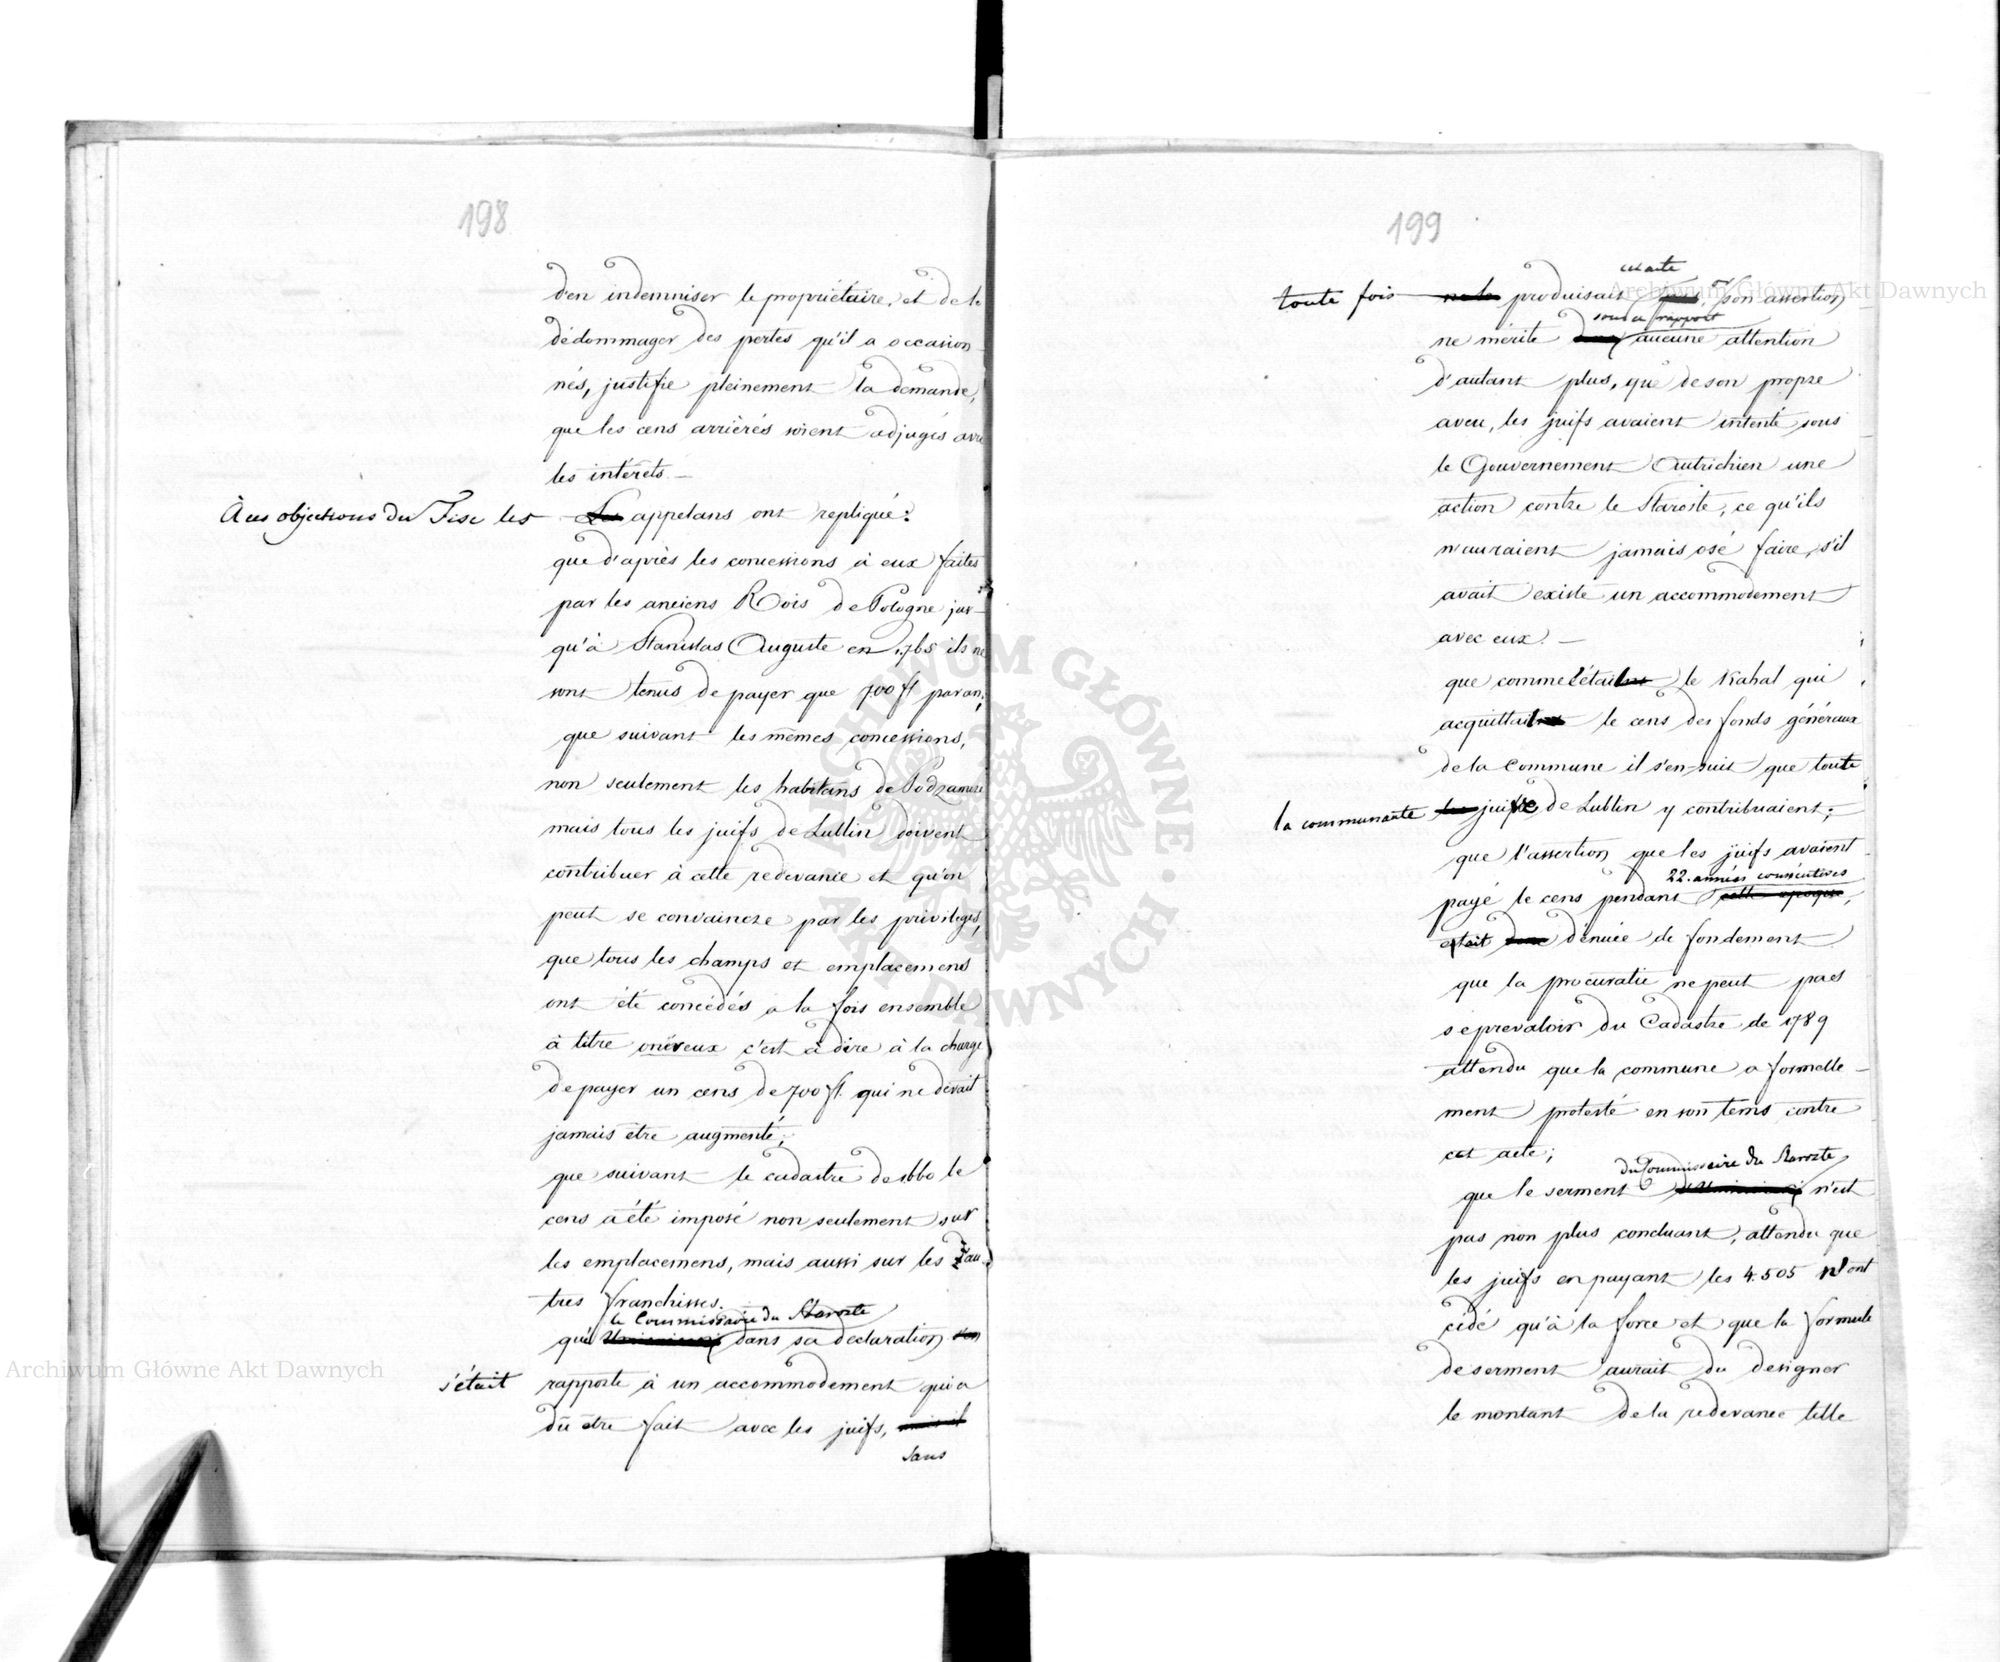 198
d'en indemniser le propriétaire, et de le
dédommager des pertes qu'il a occasion
nés, justifie pleinement la demande,
que les cens arrièrés soient adjugés avec
les intérets. —
À ces objections du Fisc les Les appelans ont repliqué:
que d'après les concessions à eux faites
par les anciens Rois de Pologne jus-
qu'à Stanislas Auguste en 1765 ils ne
sont tenus de payer que 700 fl par an;
que suivant les mêmes concessions,
non seulement les habitans de Podzamcze
mais tous les juifs de Lublin doivent
contribuer à cette redevance et qu'on
peut se convaincre par les privilèges,
que tous les champs et emplacemens
ont été concédés à la fois ensemble
à titre onéreux c'est à dire à la charge
de payer un cens de 700 fl. qui ne devait
jamais être augmenté;
que suivant le cadastre de 1660 le
cens a été imposé non seulement sur
les emplacemens, mais aussi sur les au-
tres franchises.
le Commissaire du Staroste
que dans sa declaration s'en
s'était rapporté à un accommodement qui a
dû être fait avec les juifs, mais il
sans
199
cet acte
toute fois ne le produisait pas, son assertion
sous ce rapport
ne mérite donc aucune attention
d'autant plus, que de son propre
aveu, les juifs avaient intenté sous
le Gouvernement Autrichien une
action contre le Staroste, ce qu'ils
n'auraient jamais osé faire, s'il
avait existé un accommodement
avec eux. —
que comme c'était le Kahal qui
acquittait le cens des fonds généraux
de la Commune il s'en suit que toute
la communauté les juive de Lublin y contribuaient;
que l'assertion que les juifs avaient
22. années consécutives
payé le cens pendant cette epoque,
était donc dénuée de fondement
que la procuratie ne peut pas
se prevaloir du Cadastre de 1789
attendu que la commune a formelle-
ment protesté en son tems contre
cet acte;
du Commissaire du Staroste
que le serment n'est
pas non plus concluant, attendu que
les juifs en payant les 4.505 n'ont
cédé qu'à la force et que la formule
de serment aurait du designer
le montant de la redevance telle
Archiwum Główne Akt Dawnych
Archiwum Główne Akt Dawnych
ARCHIWUM GŁÓWNE AKT DAWNYCH